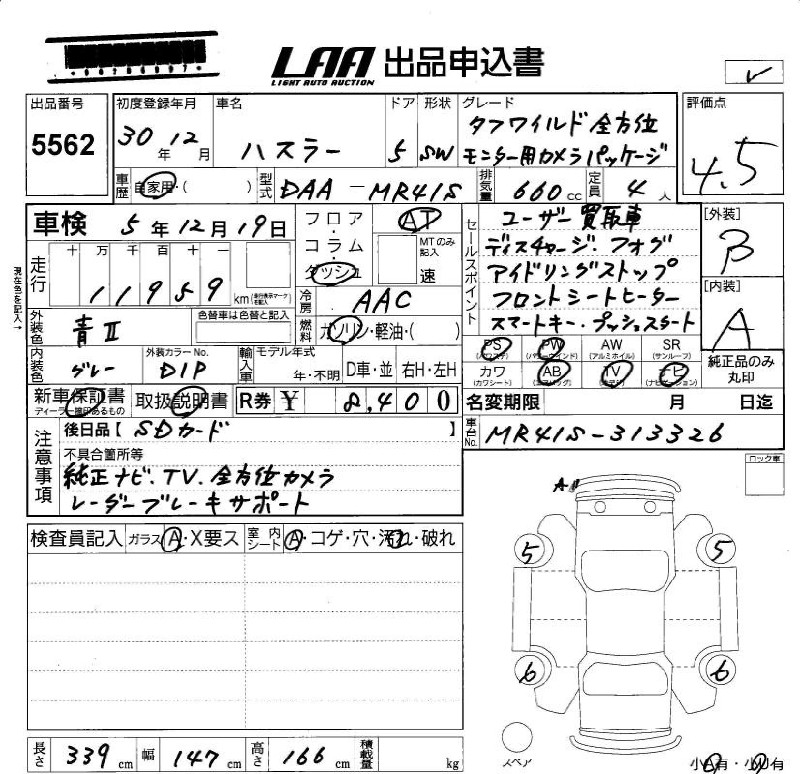 LAA 出品申込書
LIGHT AUTO AUCTION
出品番号 初度登録年月 車名 ドア 形状 グレード 評価点
5562 30年 12月 ハスラー 5 SW タフワイルド 全方位 モニター用カメラパッケージ 4.5
車歴 自家用・( ) 型式 DAA-MR41S 排気量 660cc 定員 4人
車検 5年12月19日 フロア・コラム・ダッシュ AT セールスポイント ユーザー買取車 [外装]
MTのみ記入 速 ディスチャージ フォグ B
走行 十 万 千 百 十 一 アイドリングストップ
11959 km (走行表示マーク) 冷房 AAC フロントシートヒーター [内装]
現在色を記入→ 外装色 青II 色替車は色替と記入 燃料 ガソリン・軽油・( ) スマートキー・プッシュスタート A
内装色 グレー 外装カラーNo. D1P 輸入車 モデル年式 年・不明 D車・並 右H・左H
PS (パワステ) PW (パワーウインド) AW (アルミホイル) SR (サンルーフ) 純正品のみ丸印
カワ (カワシート) AB (エアバッグ) TV (テレビ) ナビ (ナビゲーション)
新車保証書 取扱説明書 R券 ¥ 8,400 名変期限 月 日迄
注意事項 後日品【SDカード】 車台No. MR41S-313326
不具合箇所等 ロック車
純正ナビ.TV.全方位カメラ
レーダーブレーキサポート
A
検査員記入 ガラス A・X要ス 室内シート A・コゲ・穴・汚れ・破れ
5 5
6 6
スペア
長さ 339cm 幅 147cm 高さ 166cm 積載量 kg 小A有・小U有